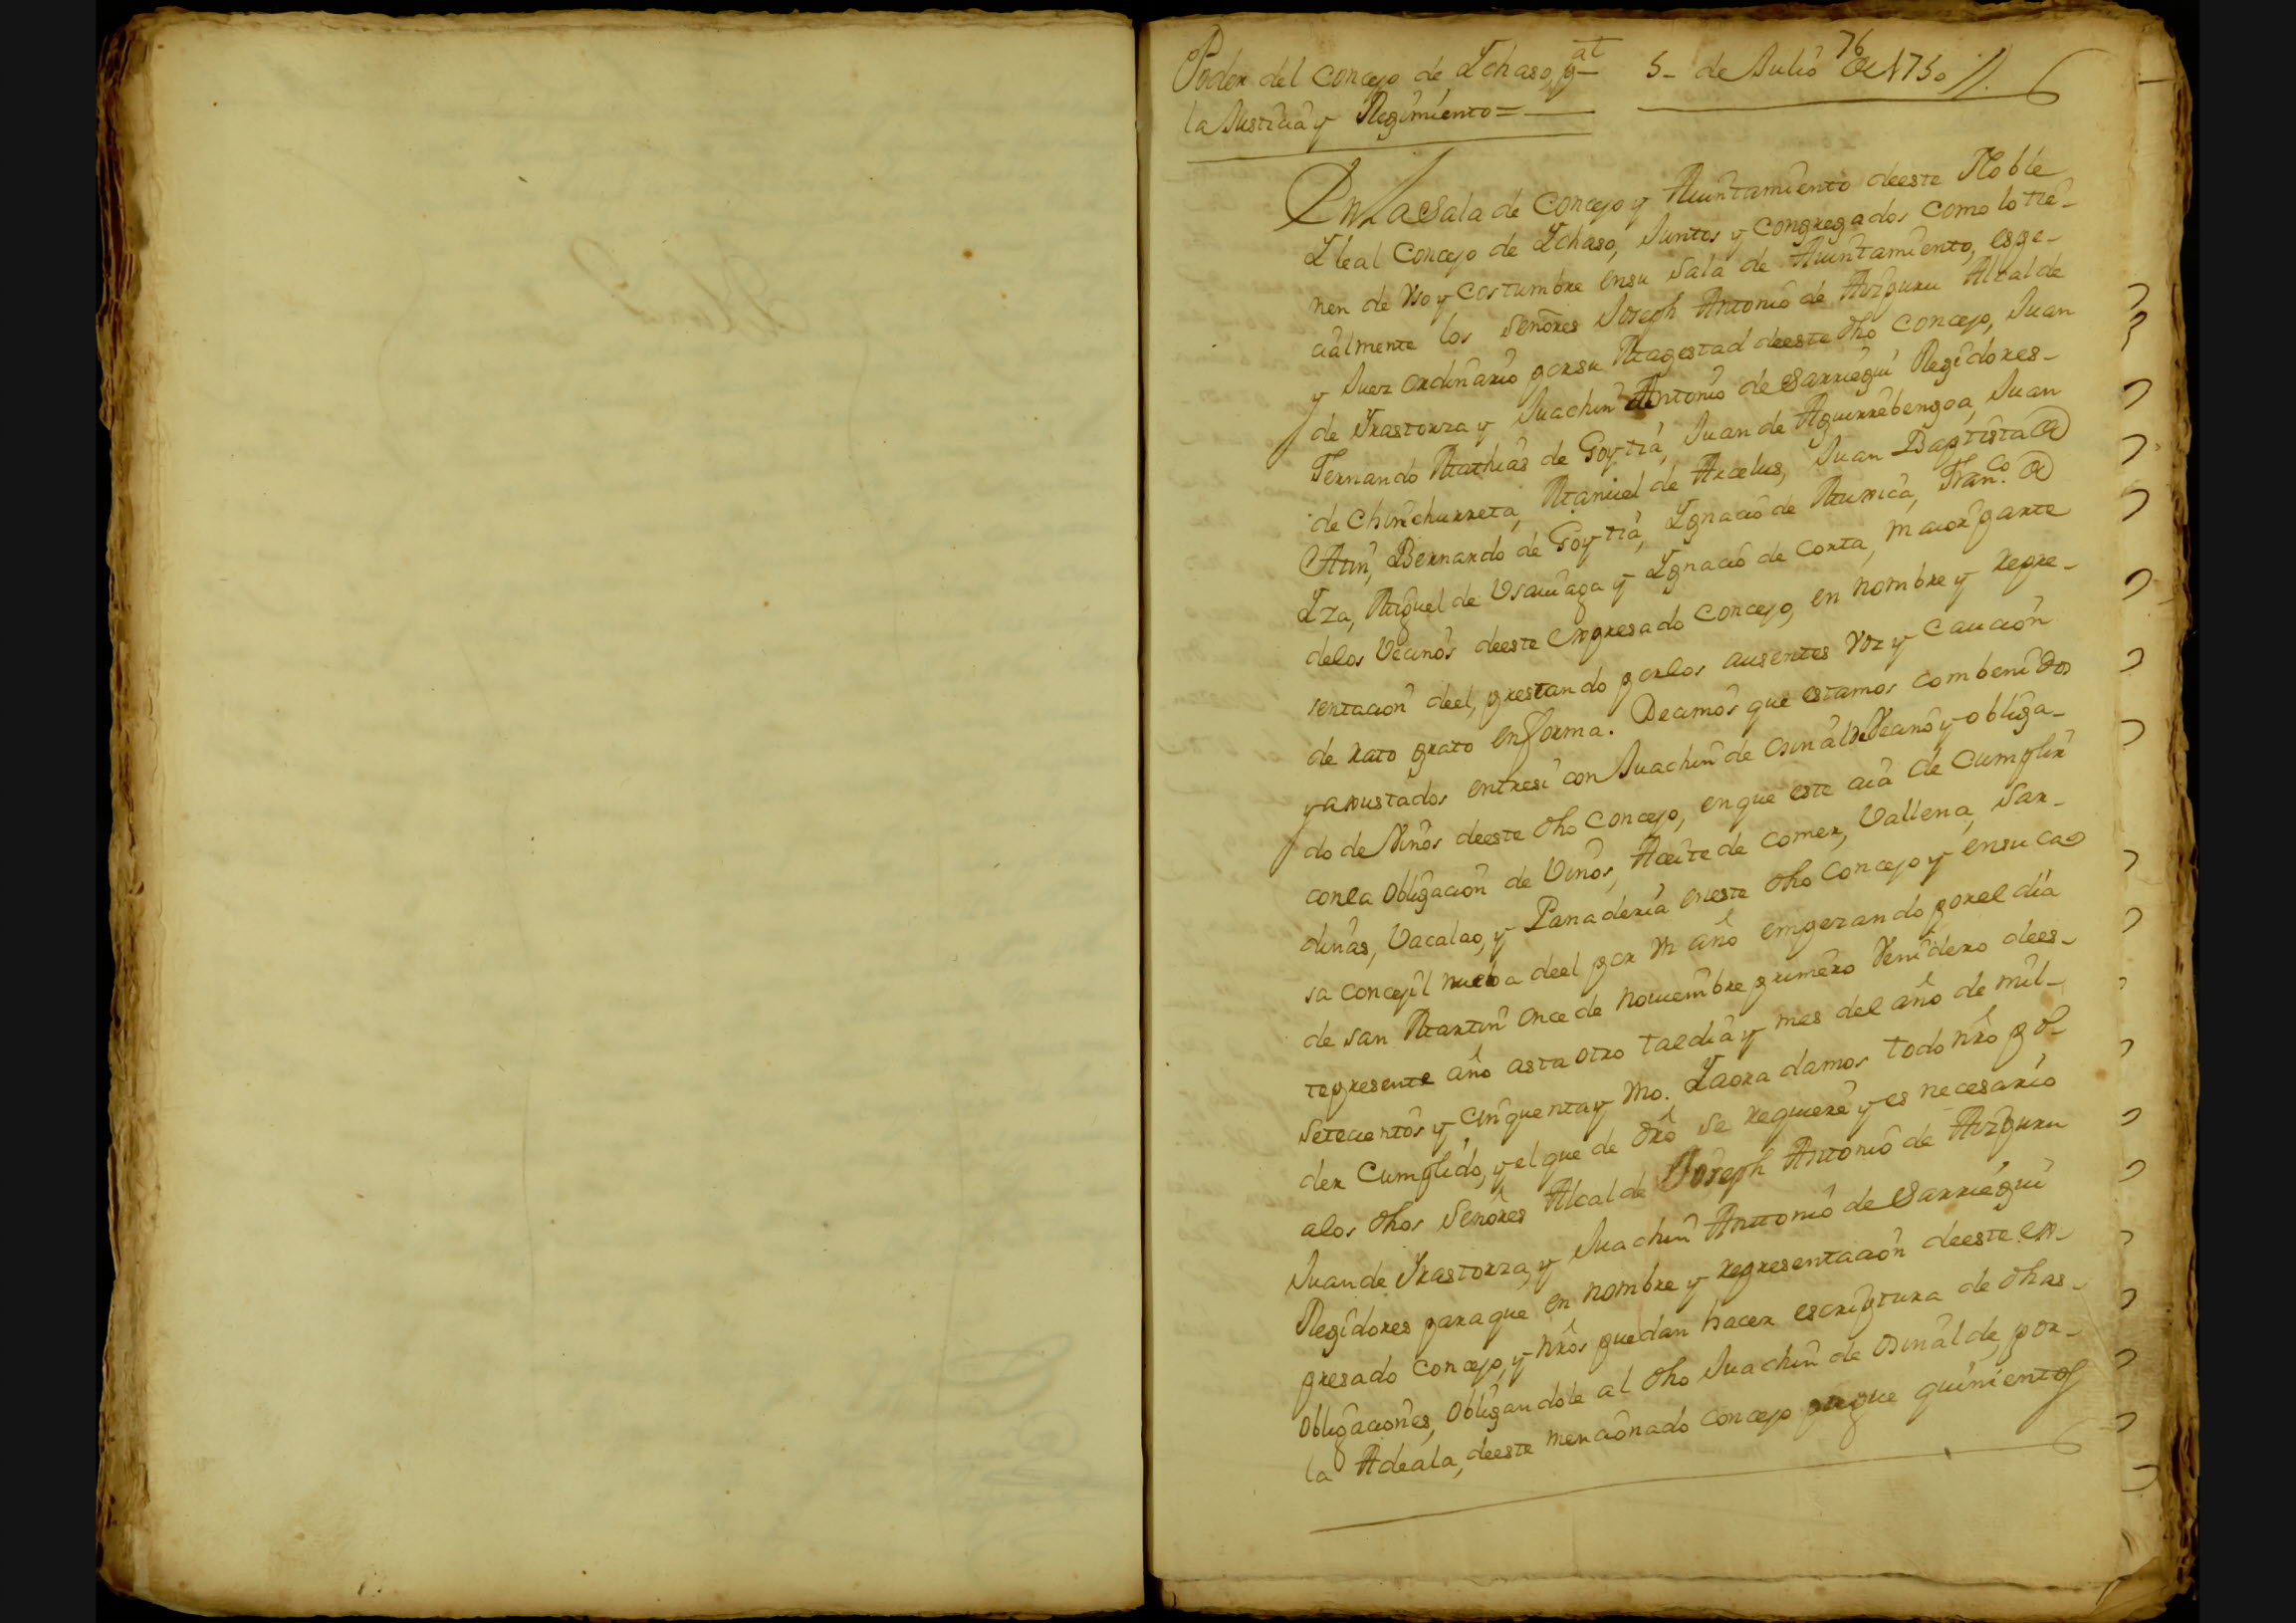 76
Poder del Concejo de Ychaso, pat
la Justicia y Regimiento =
5 de Julio de 1750 //.
En la Sala de Concejo y Aiuntamiento deeste Noble
Y leal Concejo de Ychaso, Juntos y Congregados como lo tie-
nen de Vso y Costumbre ensu Sala de Aiuntamiento, espe-
cialmente los Señores Joseph Antonio de Aizpuru Alcalde
y Juez ordinario porsu Magestad deeste dho Concejo, Juan
de Yrastorza y Juachin Antonio de Sarriegui Regidores
Fernando Mathias de Goytia, Juan de Aguirrebengoa, Juan
de Chinchurreta, Manuel de Arcelus, Juan Baptista de
Atin, Bernardo de Goytia, Ygnacio de Muxica, Fran.co de
Yza, Miguel de Vsauiaga y Ygnacio de Corta, maior parte
delos Vecinos deeste Expresado Concejo, en nombre y repre-
sentacion deel, prestando porlos ausentes Voz y Caucion
de rato grato enforma. Decimos que estamos combenidos
y ajustados entresi con Juachin de Osinalde Vecino y obliga-
do de Vinos deeste dho Concejo, enque este aia de Cumplir
conla Obligacion de Vinos, Aceite de Comer, Vallena, Sar-
dinas, Vacalao, y Panaderia eneste dho Concejo y ensu Ca
sa concejil nueba deel por Vn año empezando porel dia
de San Martin Once de Nouiembre primero Venidero dees-
tepresente año asta otro tal dia y mes del año de mil
Setecientos y cinquenta y Vno. Yaora damos todo nro po-
der Cumplido, y el que de dro se requiere y es necesario
alos dhos Señores Alcalde Joseph Antonio de Aizpuru
Juan de Yrastorza, y Juachin Antonio de Sarriegui
Regidores paraque en nombre y representacion deeste ex-
presado Concejo, y nros puedan hacer escriptura de dhas
Obligaciones, Obligandole al dho Juachin de Osinalde, por
la Adeala, deeste mencionado Concejo pague quinientos